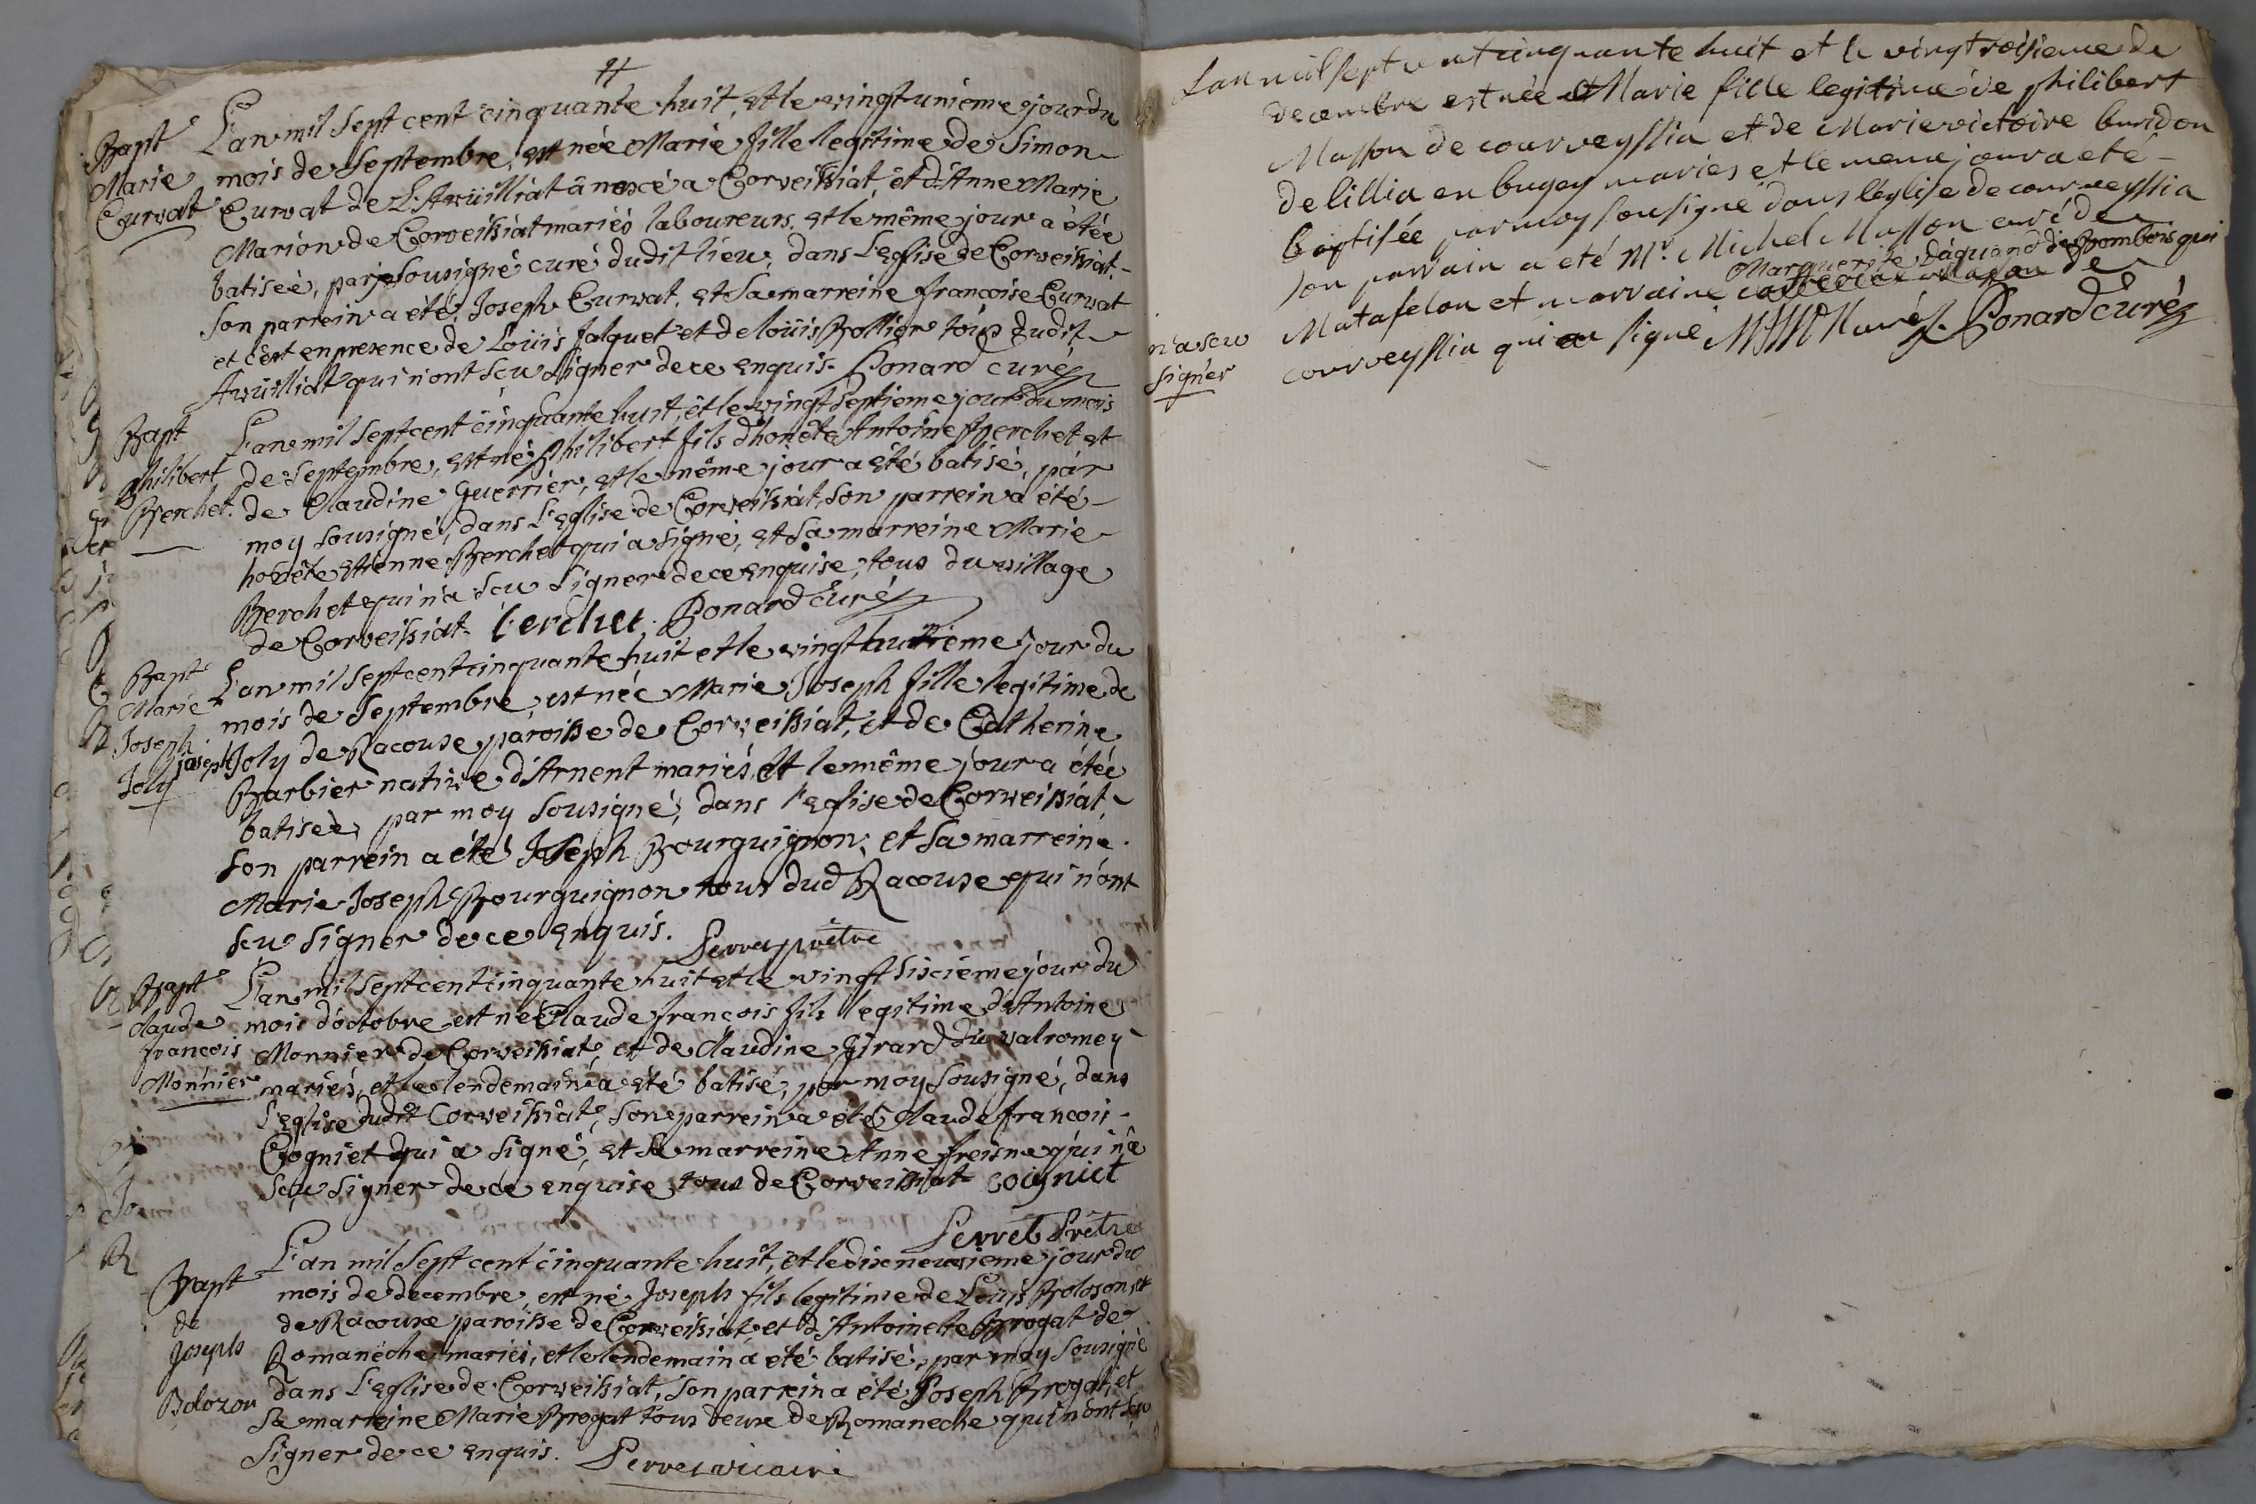 Bapt
Marie
Curvat
L'an mil sept cent cinquante huit, et le vingt unième jour du
mois de septembre, est née Marie fille legitime de Simon
Curvat de L'Avüilliat à Corveissiat, et d'Anne Marie
Marion de Corveissiat mariés laboureurs, et le même jour a étée
batiseé, par je sousigné curé dudit lieu, dans L'Eglise de Corveissiat.
Son parrein a été Joseph Curvat, et sa marreine francoise Curvat
et c'est en presence de Loüis Jalquet et de loüis Rollier tous dudit
Avüilliat qui n'ont sçu signer de ce enquis. Bonard curé
Bapt
philibert
Berchet.
L'an mil sept cent cinquante huit, et le vingt septieme jour du mois
de septembre, est né philibert fils d'honête Antoine Berchet et
de Claudine Guerrier, et le même jour a été batisé, par
moy sousigné, dans L'Eglise de Corveissiat, son parrein a été
honête Etienne Berchet qui a signé, et sa marreine Marie
Berchet qui n'a sçu signer de ce enquise, tous du village
de Corveissiat. berchet. Bonard Curé
Bapt
Marie
Joseph
joseph
Joly
L'an mil sept cent cinquante huit et le vingt huitieme jour du
mois de septembre, est née Marie Joseph fille legitime de
Joly de Racouse paroisse de Corveissiat, et de Catherine
Barbier native d'Arnent mariés, et le même jour a étée
batiseé, par moy sousigné, dans l'Eglise de Corveissiat
son parrein a été Joseph Bourguignon, et sa marreine
Marie Joseph Bourguignon tous dud Racouse qui n'ont
sçu signer de ce enquis. Perret prêtre
Bapt
claude
francois
Monnier
L'an mil sept cent cinquante huit et le vingt sixieme jour du
mois d'octobre est né Claude francois fils legitime d'Antoine
Monnier de Corveissiat, et de Claudine Girard du valromey
mariés, et le lendemain a été batisé, par moy sousigné, dans
l'Eglise dudit Corveissiat, son parrein a été Claude francois
Cogniet qui a signé, et sa marreine Anne freisne qui n'a
sçu signer de ce enquise tous de Corveissiat cogniet
Perret Prêtre
Bapt
de
Joseph
Bolozon
L'an mil sept cent cinquante huit, et le dix neuvieme jour du
mois de decembre, est né Joseph fils legitime de Loüis Bolozon et
de Racouse paroisse de Corveissiat, et d'Antoinette Brogat de
Romanéche, mariés, et le lendemain a été batisé, par moy sousigné
dans l'Eglise de Corveissiat, son parrein a été Joseph Brogat, et
sa marreine Marie Brogat tous deux de Romaneche qui n'ont sçu
signer de ce enquis. Perret vicaire
Lan mil sept cent cinquante huit et le vingt troisieme de
decembre est née Marie fille legitime de philibert
Masson de courveyssia et de Marie victoire buridon
de lillia en bugey maries et le meme jour a eté
baptisée par moy sousigné dans leglise de courveyssia
son parrain a eté Mr. Michel Masson curé de
Marguerite de Bombois qui
Matafelon et marraine de
n'a sçu
signer
courveyssia qui signé Bonard Curé